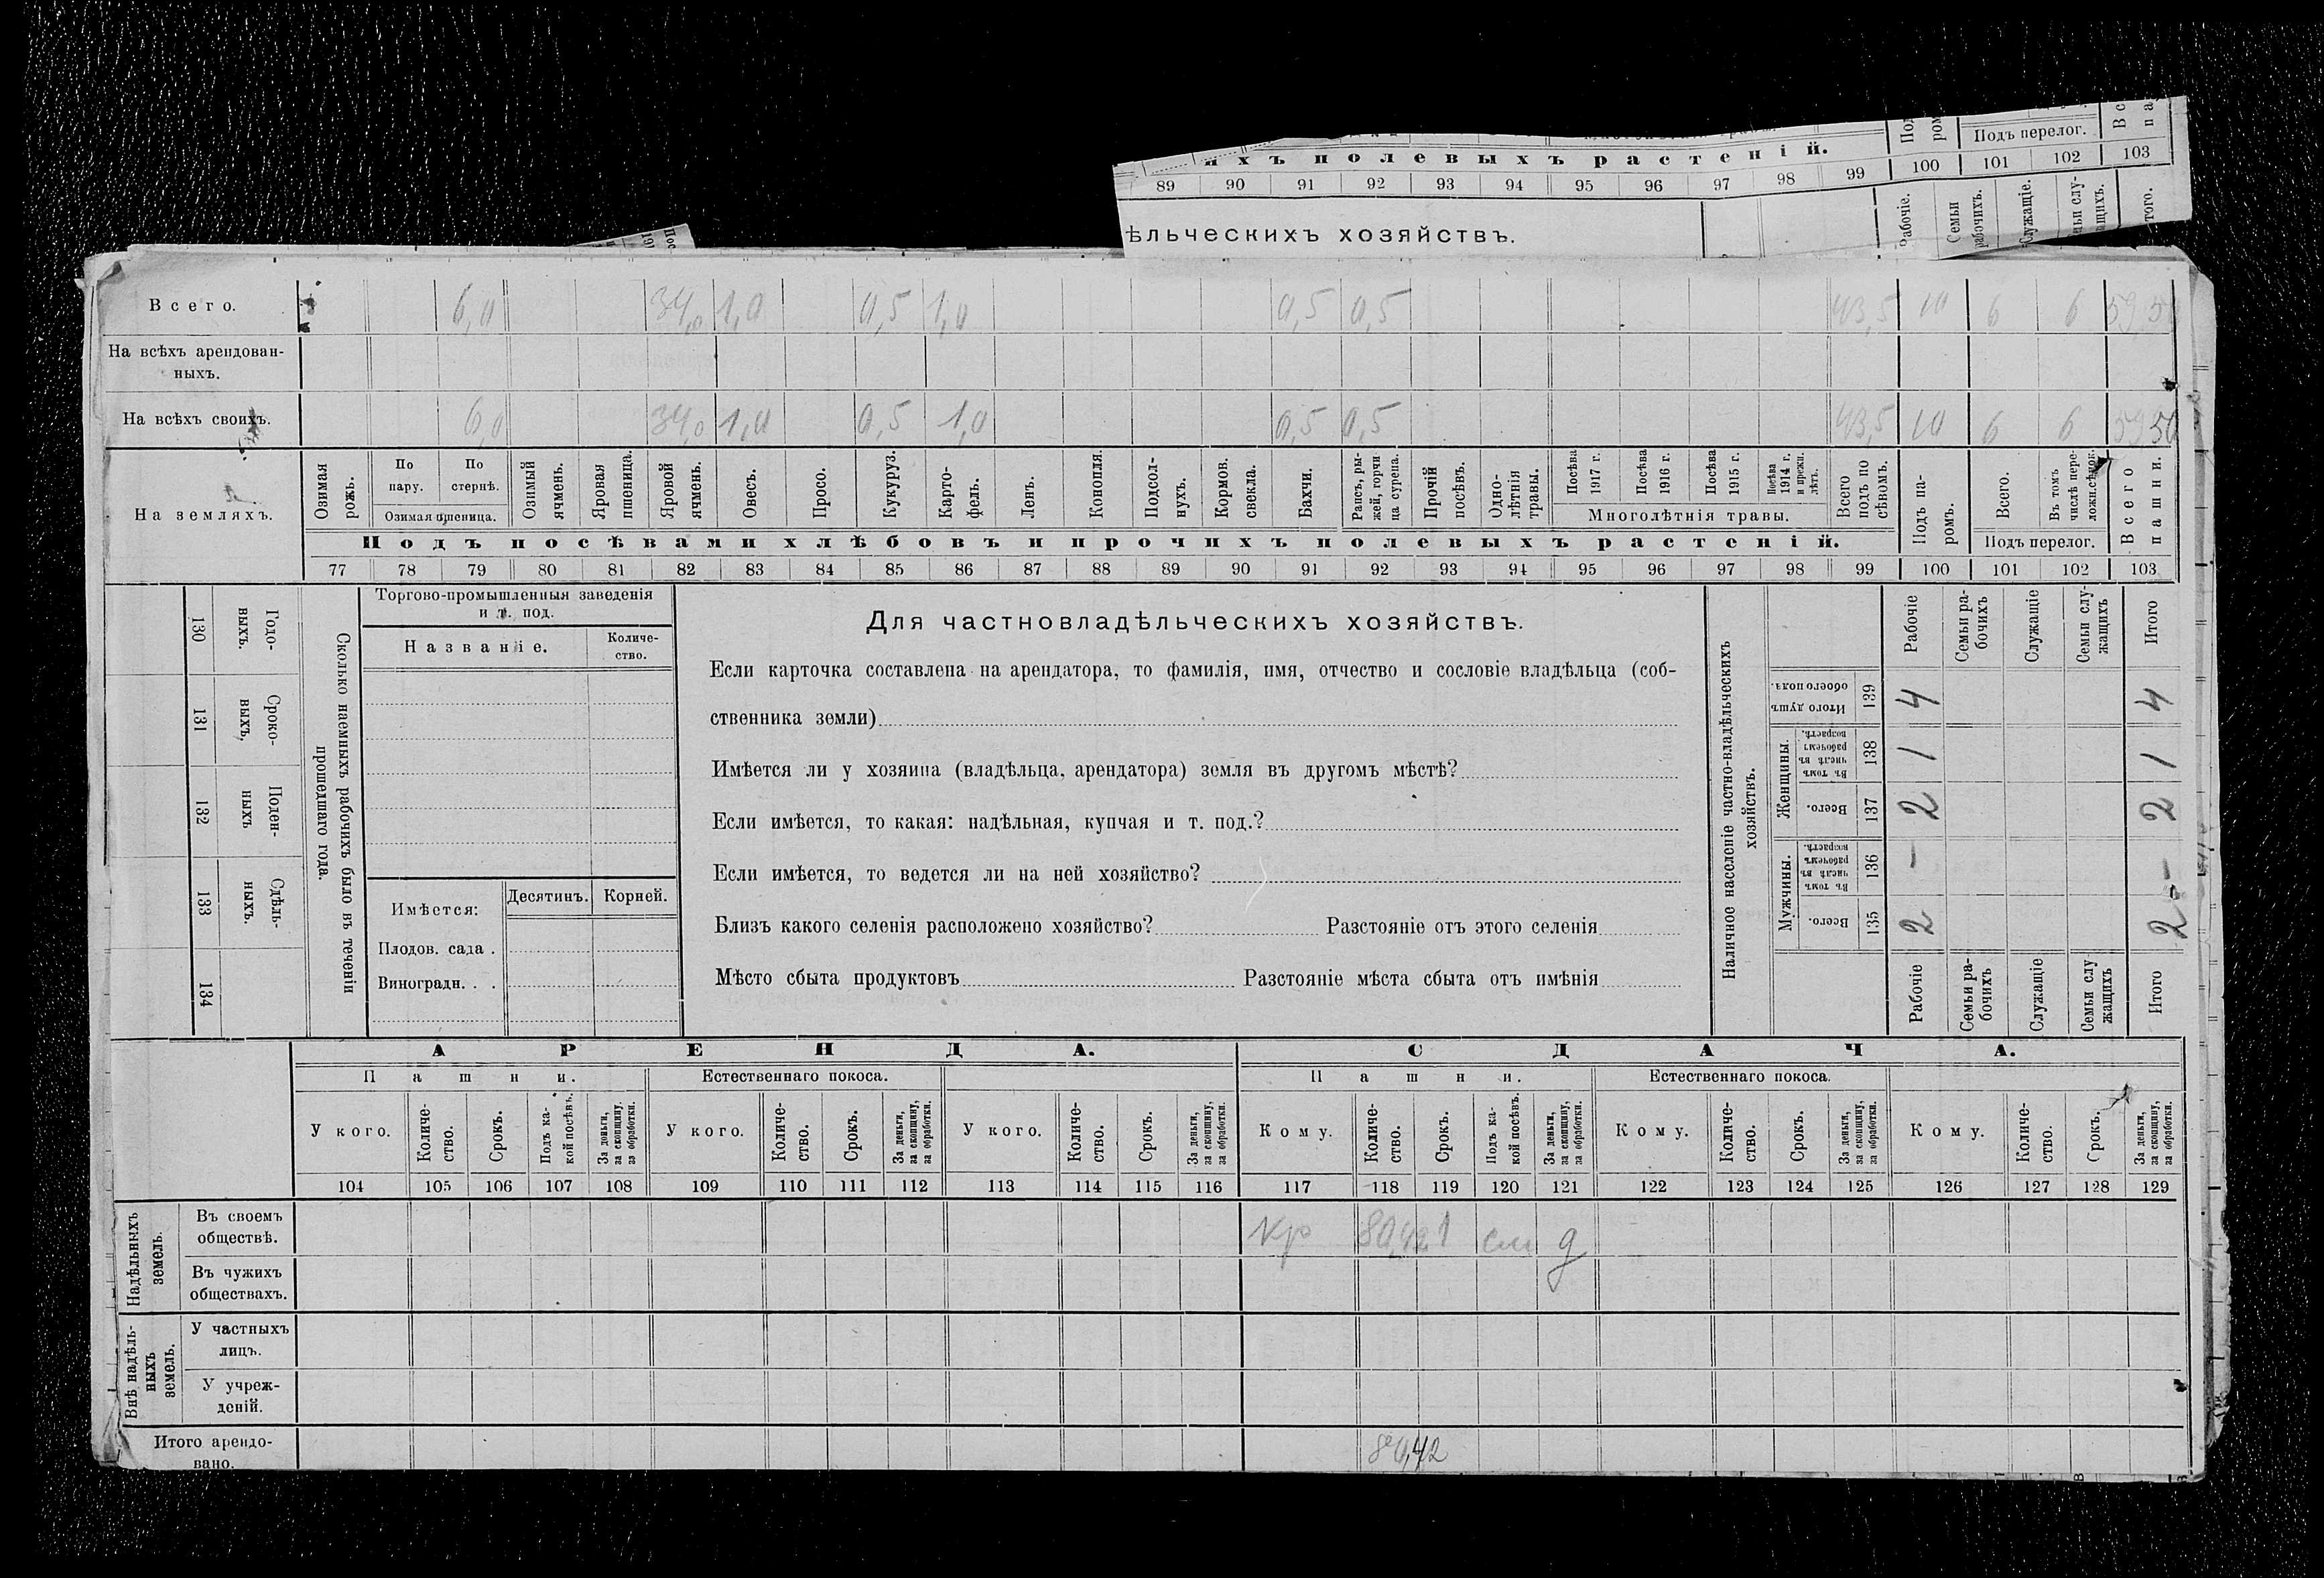 ыхъ полевыхъ растеній.
Подъ перелог.
89 90 91 92 93 94 95 96 97 98 99 100 101 102 103
ѣльческихъ хозяйствъ.
Всего. 6,0 34,0 1,0 0,5 1,0 0,5 0,5 43,5 10 6 6 59,50
На всѣхъ арендован-
ныхъ.
На всѣхъ своихъ. 6,0 34,0 1,0 0,5 1,0 0,5 0,5 43,5 10 6 6 59,50
На земляхъ.
Озимая рожь.
По пару.
По стернѣ.
Озимая пшеница.
Озимый ячмень.
Яровая пшеница.
Яровой ячмень.
Овесъ.
Просо.
Кукуруз.
Карто-
фель.
Ленъ.
Конопля.
Подсол-
нухъ.
Кормов.
свекла.
Бахчи.
Рапсъ, ры-
жей, горчи
ца сурепа.
Прочій
посѣвъ.
Одно-
лѣтнія
травы.
Посѣва
1917 г.
Посѣва
1916 г.
Посѣва
1915 г.
Посѣва
1914 г.
и прежн.
лѣтъ.
Многолѣтнія травы.
Всего
подъ по
сѣвомъ.
Подъ па-
ромъ.
Всего.
Въ томъ
числѣ пере-
ложн.сѣнок.
Подъ перелог.
Всего
пашни.
Подъ посѣвами хлѣбовъ и прочихъ полевыхъ растеній.
77 78 79 80 81 82 83 84 85 86 87 88 89 90 91 92 93 94 95 96 97 98 99 100 101 102 103
Сколько наемныхъ рабочихъ было въ теченіи
прошедшаго года.
Годо-
выхъ.
130
Сроко-
выхъ,
131
Поден-
ныхъ
132
Сдѣль-
ныхъ.
133
134
Торгово-промышленныя заведенія
и т. под.
Названіе.
Количе-
ство.
Имѣется:
Десятинъ.
Корней.
Плодов. сада .
Виноградн. . .
Для частновладѣльческихъ хозяйствъ.
Если карточка составлена на арендатора, то фамилія, имя, отчество и сословіе владѣльца (соб-
ственника земли)
Имѣется ли у хозяина (владѣльца, арендатора) земля въ другомъ мѣстѣ?
Если имѣется, то какая: надѣльная, купчая и т. под.?
Если имѣется, то ведется ли на ней хозяйство?
Близъ какого селенія расположено хозяйство? Разстояніе отъ этого селенія
Мѣсто сбыта продуктовъ Разстояніе мѣста сбыта отъ имѣнія
Наличное населеніе частно-владѣльческихъ
хозяйствъ.
Рабочіе
Семьи ра-
бочихъ
Служащіе
Семьи слу-
жащихъ
Итого
Итого душъ
обоего пола.
139 4 4
Женщины.
Въ томъ
числѣ въ
рабочемъ
возрастѣ.
138 1 1
Всего.
137 2 2
Мужчины.
Въ томъ
числѣ въ
рабочемъ
возрастѣ.
136 - -
Всего.
135 2 2
Рабочіе
Семьи ра-
бочихъ
Служащіе
Семьи слу
жащихъ
Итого
АРЕНДА. СДАЧА.
Пашни. Естественнаго покоса. Пашни. Естественнаго покоса.
У кого.
Количе-
ство.
Срокъ.
Подъ ка-
кой посѣвъ.
За деньги,
за скопщину,
за обработки.
У кого.
Количе-
ство.
Срокъ.
За деньги,
за скопщину,
за обработки.
У кого.
Количе-
ство.
Срокъ.
За деньги,
за скопщину,
за обработки.
Кому.
Количе-
ство.
Срокъ.
Подъ ка-
кой посѣвъ.
За деньги,
за скопщину,
за обработки.
Кому.
Количе-
ство.
Срокъ.
За деньги,
за скопщину,
за обработки.
Кому.
Количе-
ство.
Срокъ.
За деньги,
за скопщину,
за обработки.
104 105 106 107 108 109 110 111 112 113 114 115 116 117 118 119 120 121 122 123 124 125 126 127 128 129
Надѣльныхъ
земель.
Въ своемъ
обществѣ. кр 80,42 1 см д
Въ чужихъ
обществахъ.
Внѣ надѣль-
ныхъ
земель.
У частныхъ
лицъ.
У учреж-
деній.
Итого арендо-
вано. 80,42